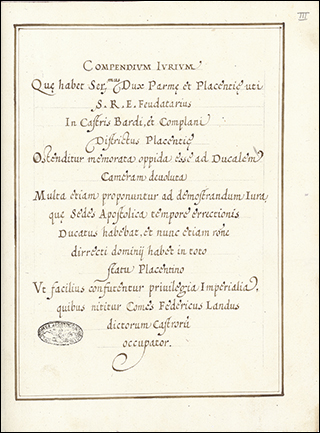 III
COMPENDIUM IURIUM
Quę habet Ser.mus Dux Parmę et Placentię uti
S. R. E. Feudatarius
In Castris Bardi, et Complani
Districtus Placentię
Ostenditur memorata oppida esse ad Ducalem
Cameram devoluta
Multa etiam proponuntur ad demostrandum Iura,
quę Sedes Apostolica tempore errectionis
Ducatus habebat, et nunc etiam rõne
dirrecti dominij habet in toto
statu Placentino
Vt facilius confutentur priuilegia Imperialia,
quibus nititur Comes Federicus Landus
dictorum Castrorũ
occupator.